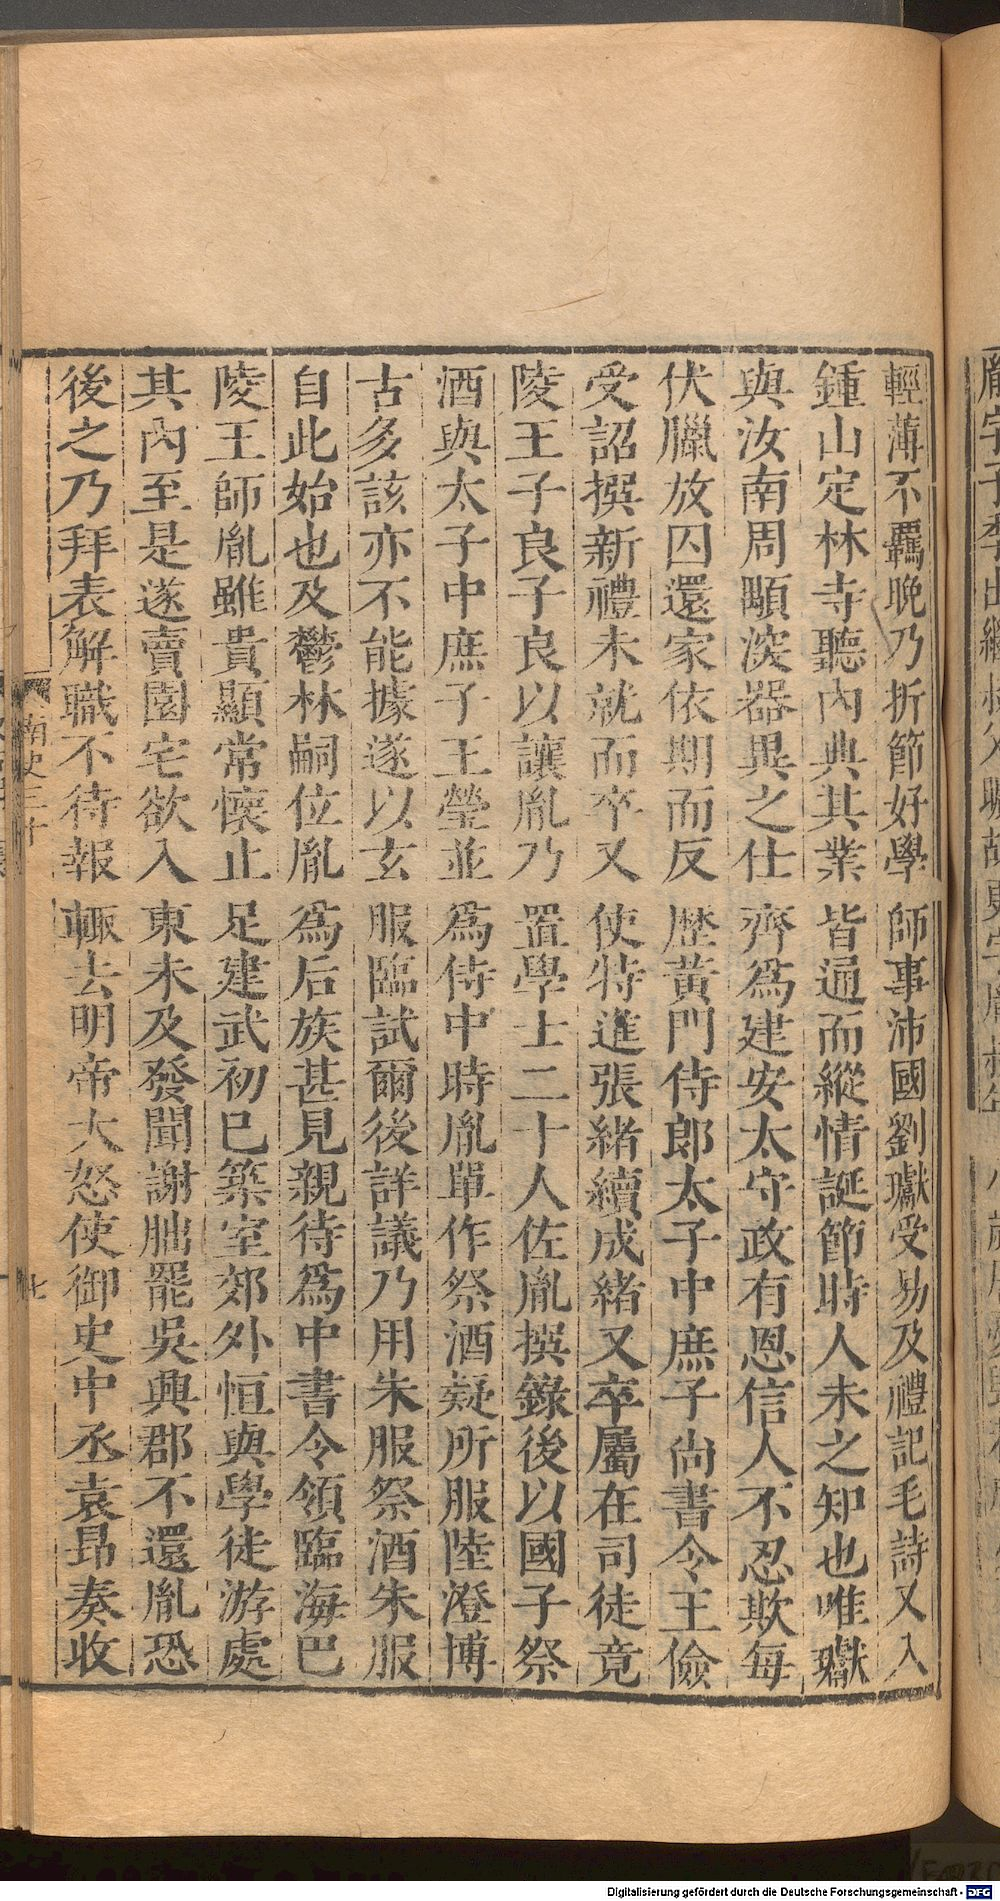 輕薄不羈晚乃折節好學師事沛國劉瓛受易及禮記毛詩又入
鍾山定林寺聽內典其業皆通而縱情誕節時人未之知也唯瓛
與汝南周顒深器異之仕齊爲建安太守政有恩信人不忍欺每
伏臘放囚還家依期而反歷黃門侍郎太子中庶子尚書令王儉
受詔撰新禮未就而卒又使特進張緒續成緒又卒屬在司徒竟
陵王子良子良以讓胤乃置學士二十人佐胤撰錄後以國子祭
酒與太子中庶子王瑩並爲侍中時胤單作祭酒疑所服陸澄博
古多該亦不能據遂以玄服臨試爾後詳議乃用朱服祭酒朱服
自此始也及鬱林嗣位胤爲后族甚見親待爲中書令領臨海巴
陵王師胤雖貴顯常懷止足建武初巳築室郊外恒與學徒游處
其內至是遂賣園宅欲入東未及發聞謝朏罷吳興郡不還胤恐
後之乃拜表解職不待報輒去明帝大怒使御史中丞袁昂奏收
南史三十
七
Digitalisierung gefördert durch die Deutsche Forschungsgemeinschaft - DFG